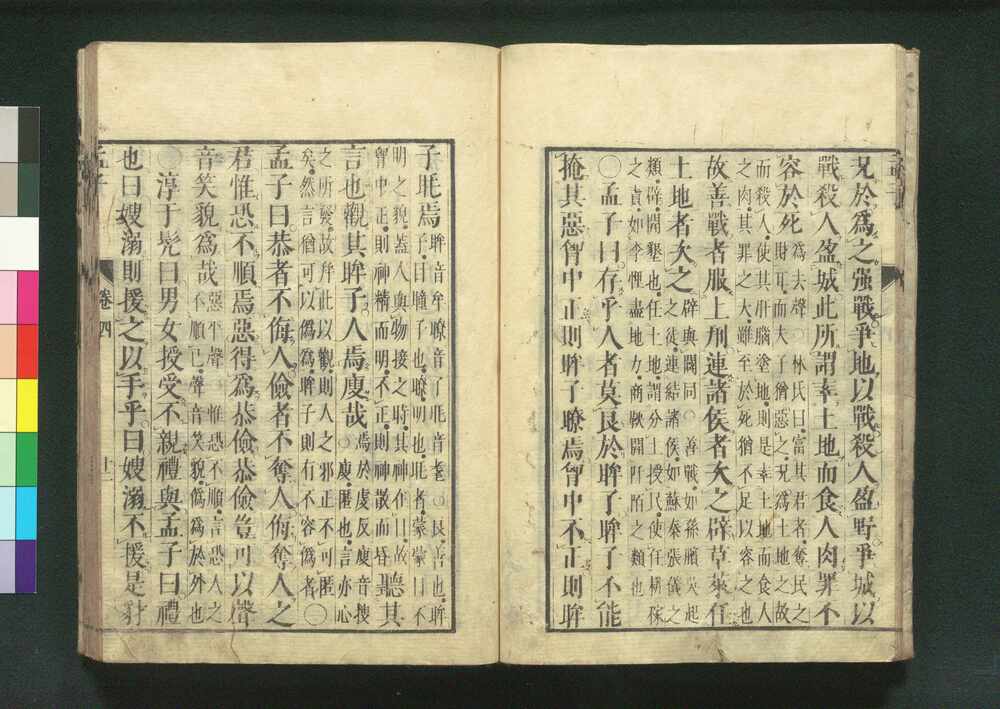 况於爲之强戰爭地以戰殺人盈野爭城以
戰殺人盈城此所謂率土地而食人肉罪不
容於死
爲去聲○林氏曰富其君者奪民之
財耳而夫子猶惡之况爲土地之故
而殺人使其肝腦塗地則是率土地而食人
之肉其罪之大雖至於死猶不足以容之也
故善戰者服上刑連諸侯者次之辟草萊任
土地者次之
辟與闢同○善戰如孫臏吳起
之徒連結諸侯如蘇秦張儀之
類辟開墾也任土地謂分土授民使任耕稼
之責如李悝盡地力商鞅開阡陌之類也
○孟子曰存乎人者莫良於眸子眸子不能
掩其惡胷中正則眸子瞭焉胷中不正則眸
子眊焉
眸音牟瞭音了眊音耄○良善也眸
子目瞳子也瞭明也眊者蒙蒙目不
明之貌蓋人與物接之時其神在目故
胷中正則神精而明不正則神散而昏
聽其
言也觀其眸子人焉廋哉
焉於虔反廋音搜
○廋匿也言亦心
之所發故并此以觀則人之邪正不可匿
矣然言猶可以僞爲眸子則有不容僞者
○
孟子曰恭者不侮人儉者不奪人侮奪人之
君惟恐不順焉惡得爲恭儉恭儉豈可以聲
音笑貌爲哉
惡平聲○惟恐不順言恐人之
不順己聲音笑貌僞爲於外也
○淳于髡曰男女授受不親禮與孟子曰禮
也曰嫂溺則援之以手乎曰嫂溺不援是豺
孟子
卷四
十二